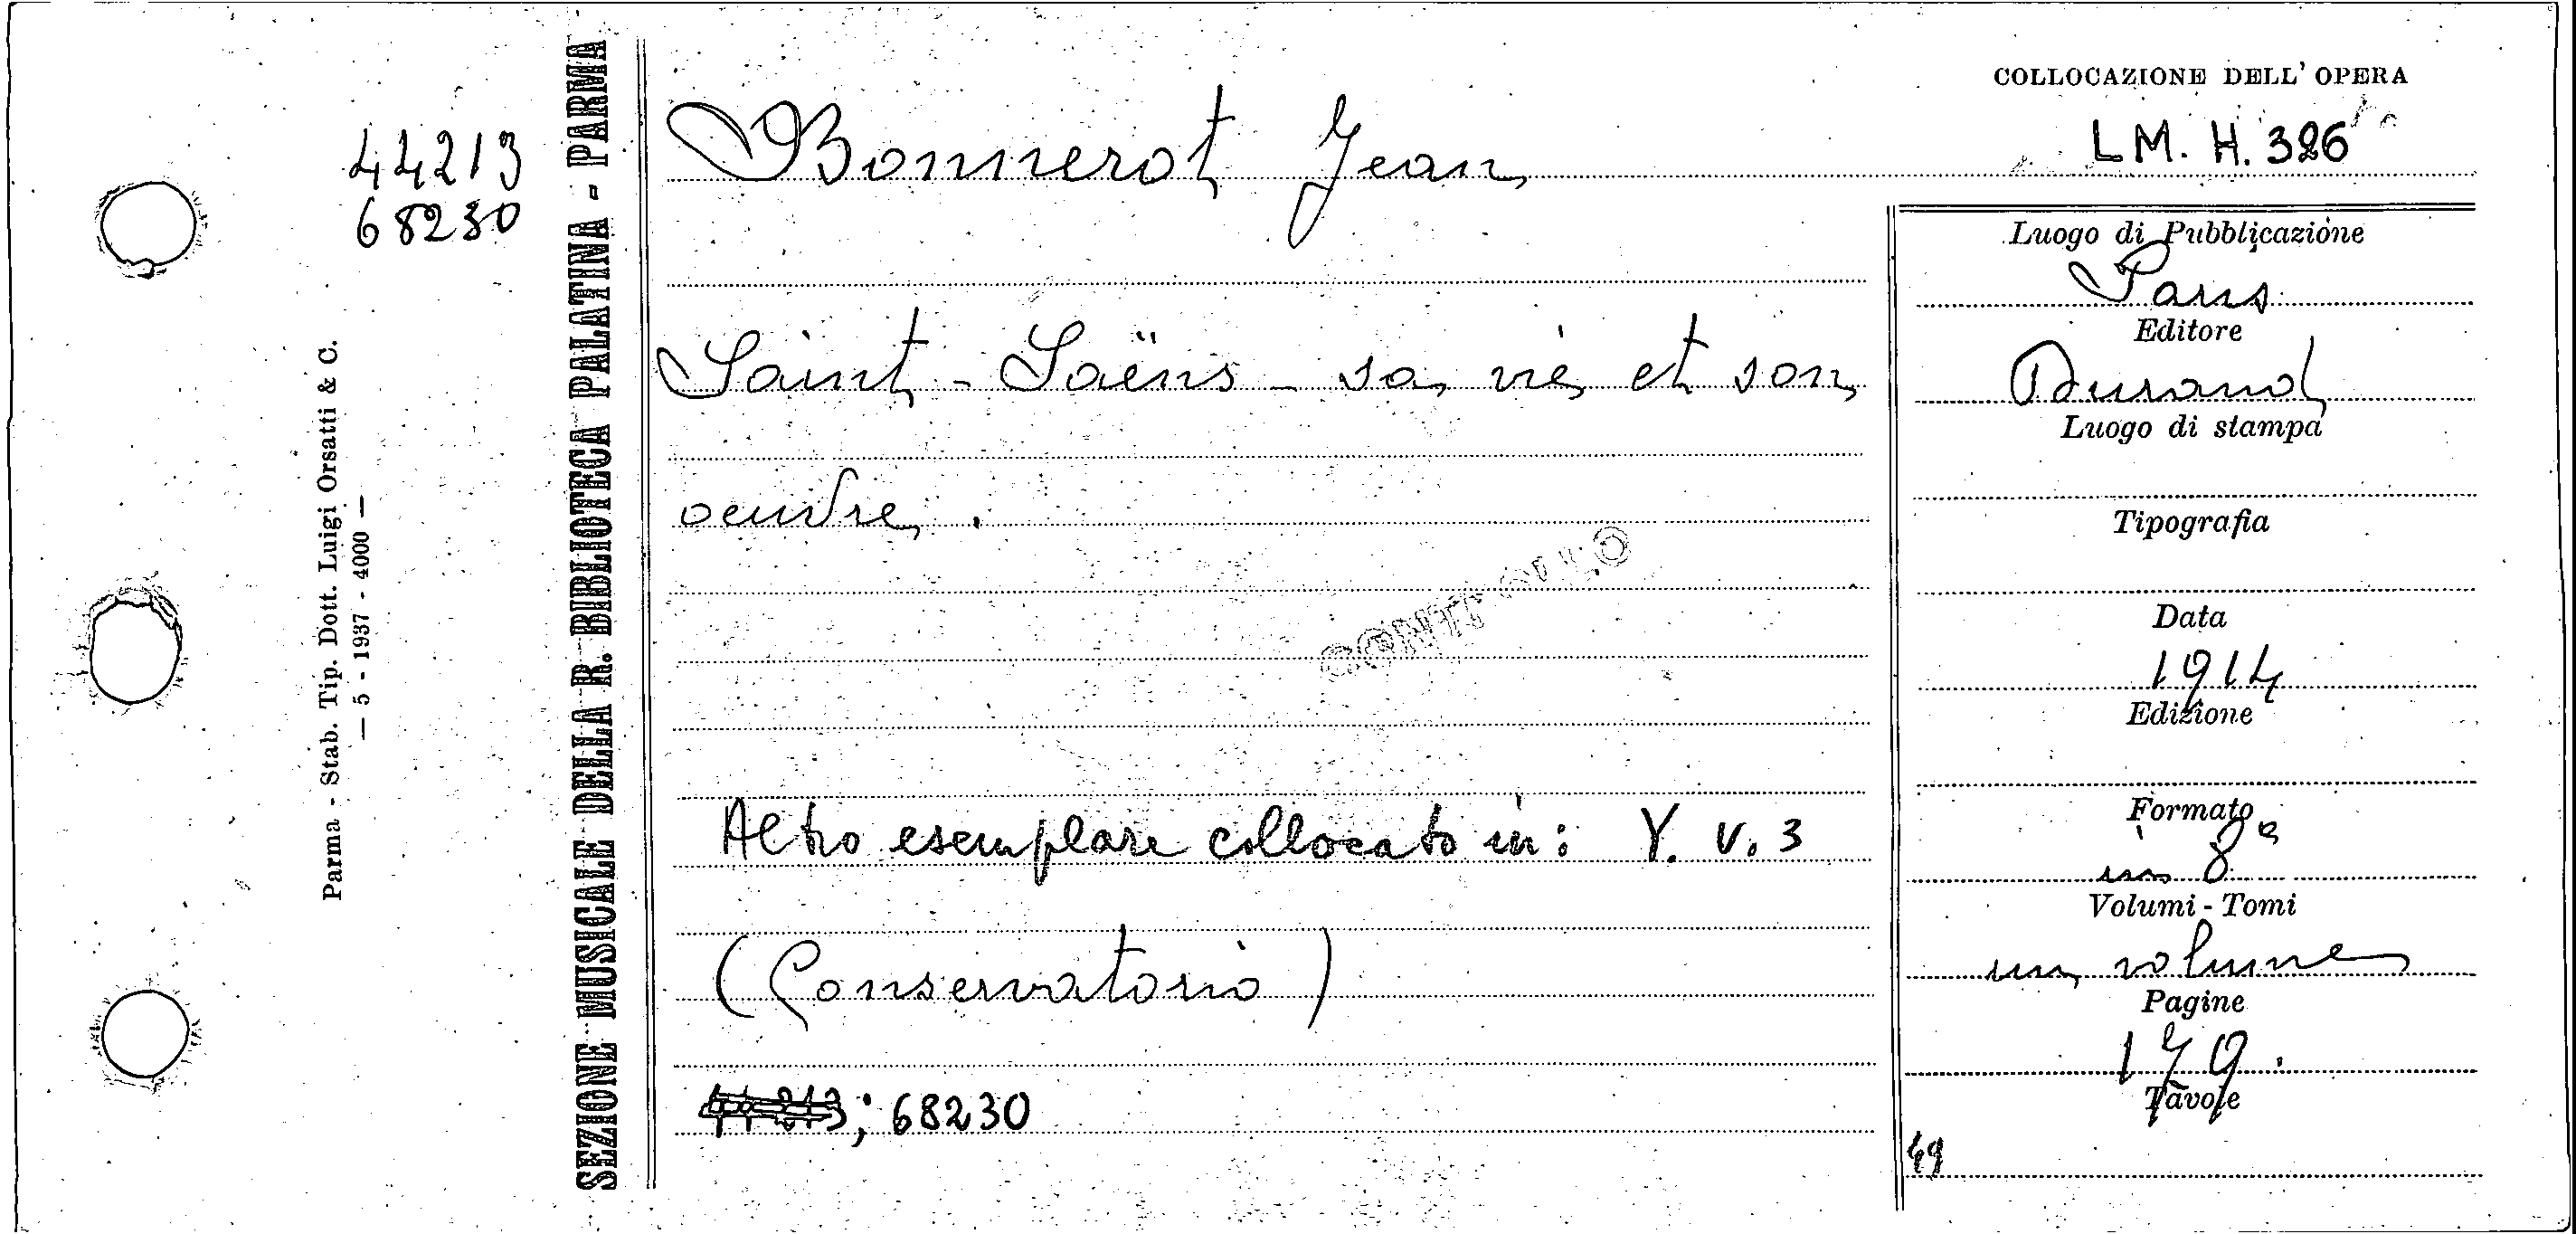 44213
68230
Parma - Stab. Tip. Dott. Luigi Orsatti & C.
— 5 - 1937 - 4000 —
SEZIONE MUSICALE DELLA R. BIBLIOTECA PALATINA - PARMA
Bonnerot Jean
Saint-Saëns - sa vie et son
oeuvre.
CONTROLLO
Altro esemplare collocato in: Y. V. 3
(Conservatorio)
44213; 68230
COLLOCAZIONE DELL'OPERA
L M. H. 326
Luogo di Pubblicazione
Paris
Editore
Durand
Luogo di stampa
Tipografia
Data
1914
Edizione
Formato
in 8º
Volumi - Tomi
un volume
Pagine
179.
Tavole
49